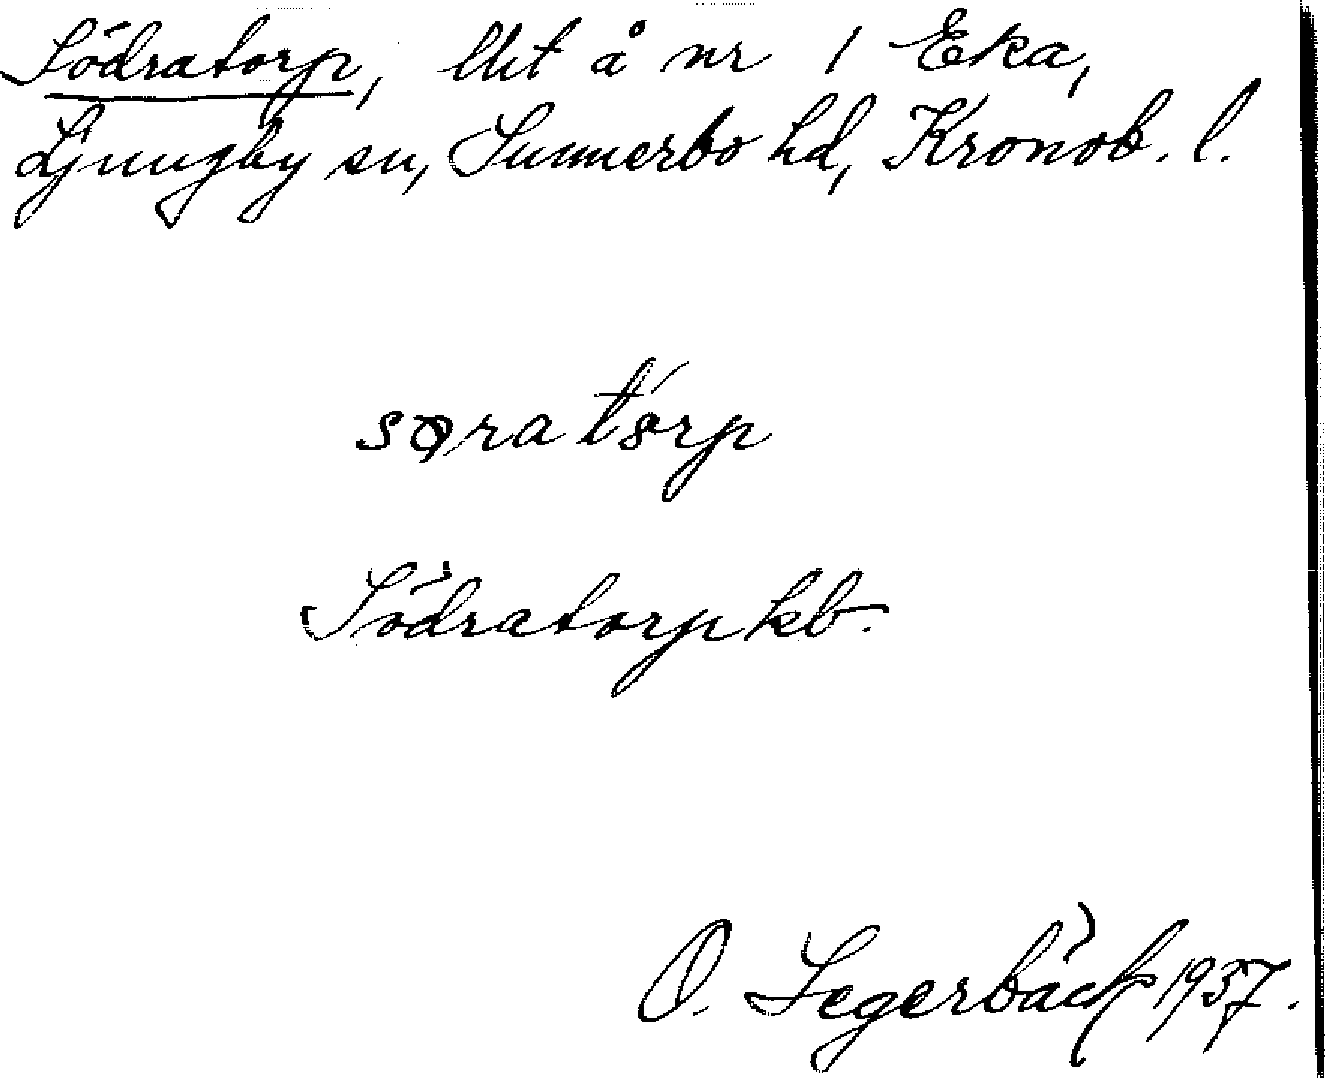 Södratorp, lht å nr 1 Eka,
Ljungby sn, Sunnerbo hd, Kronob. l.
søratórp
Södratorp kb.
O. Segerbäck 1937.